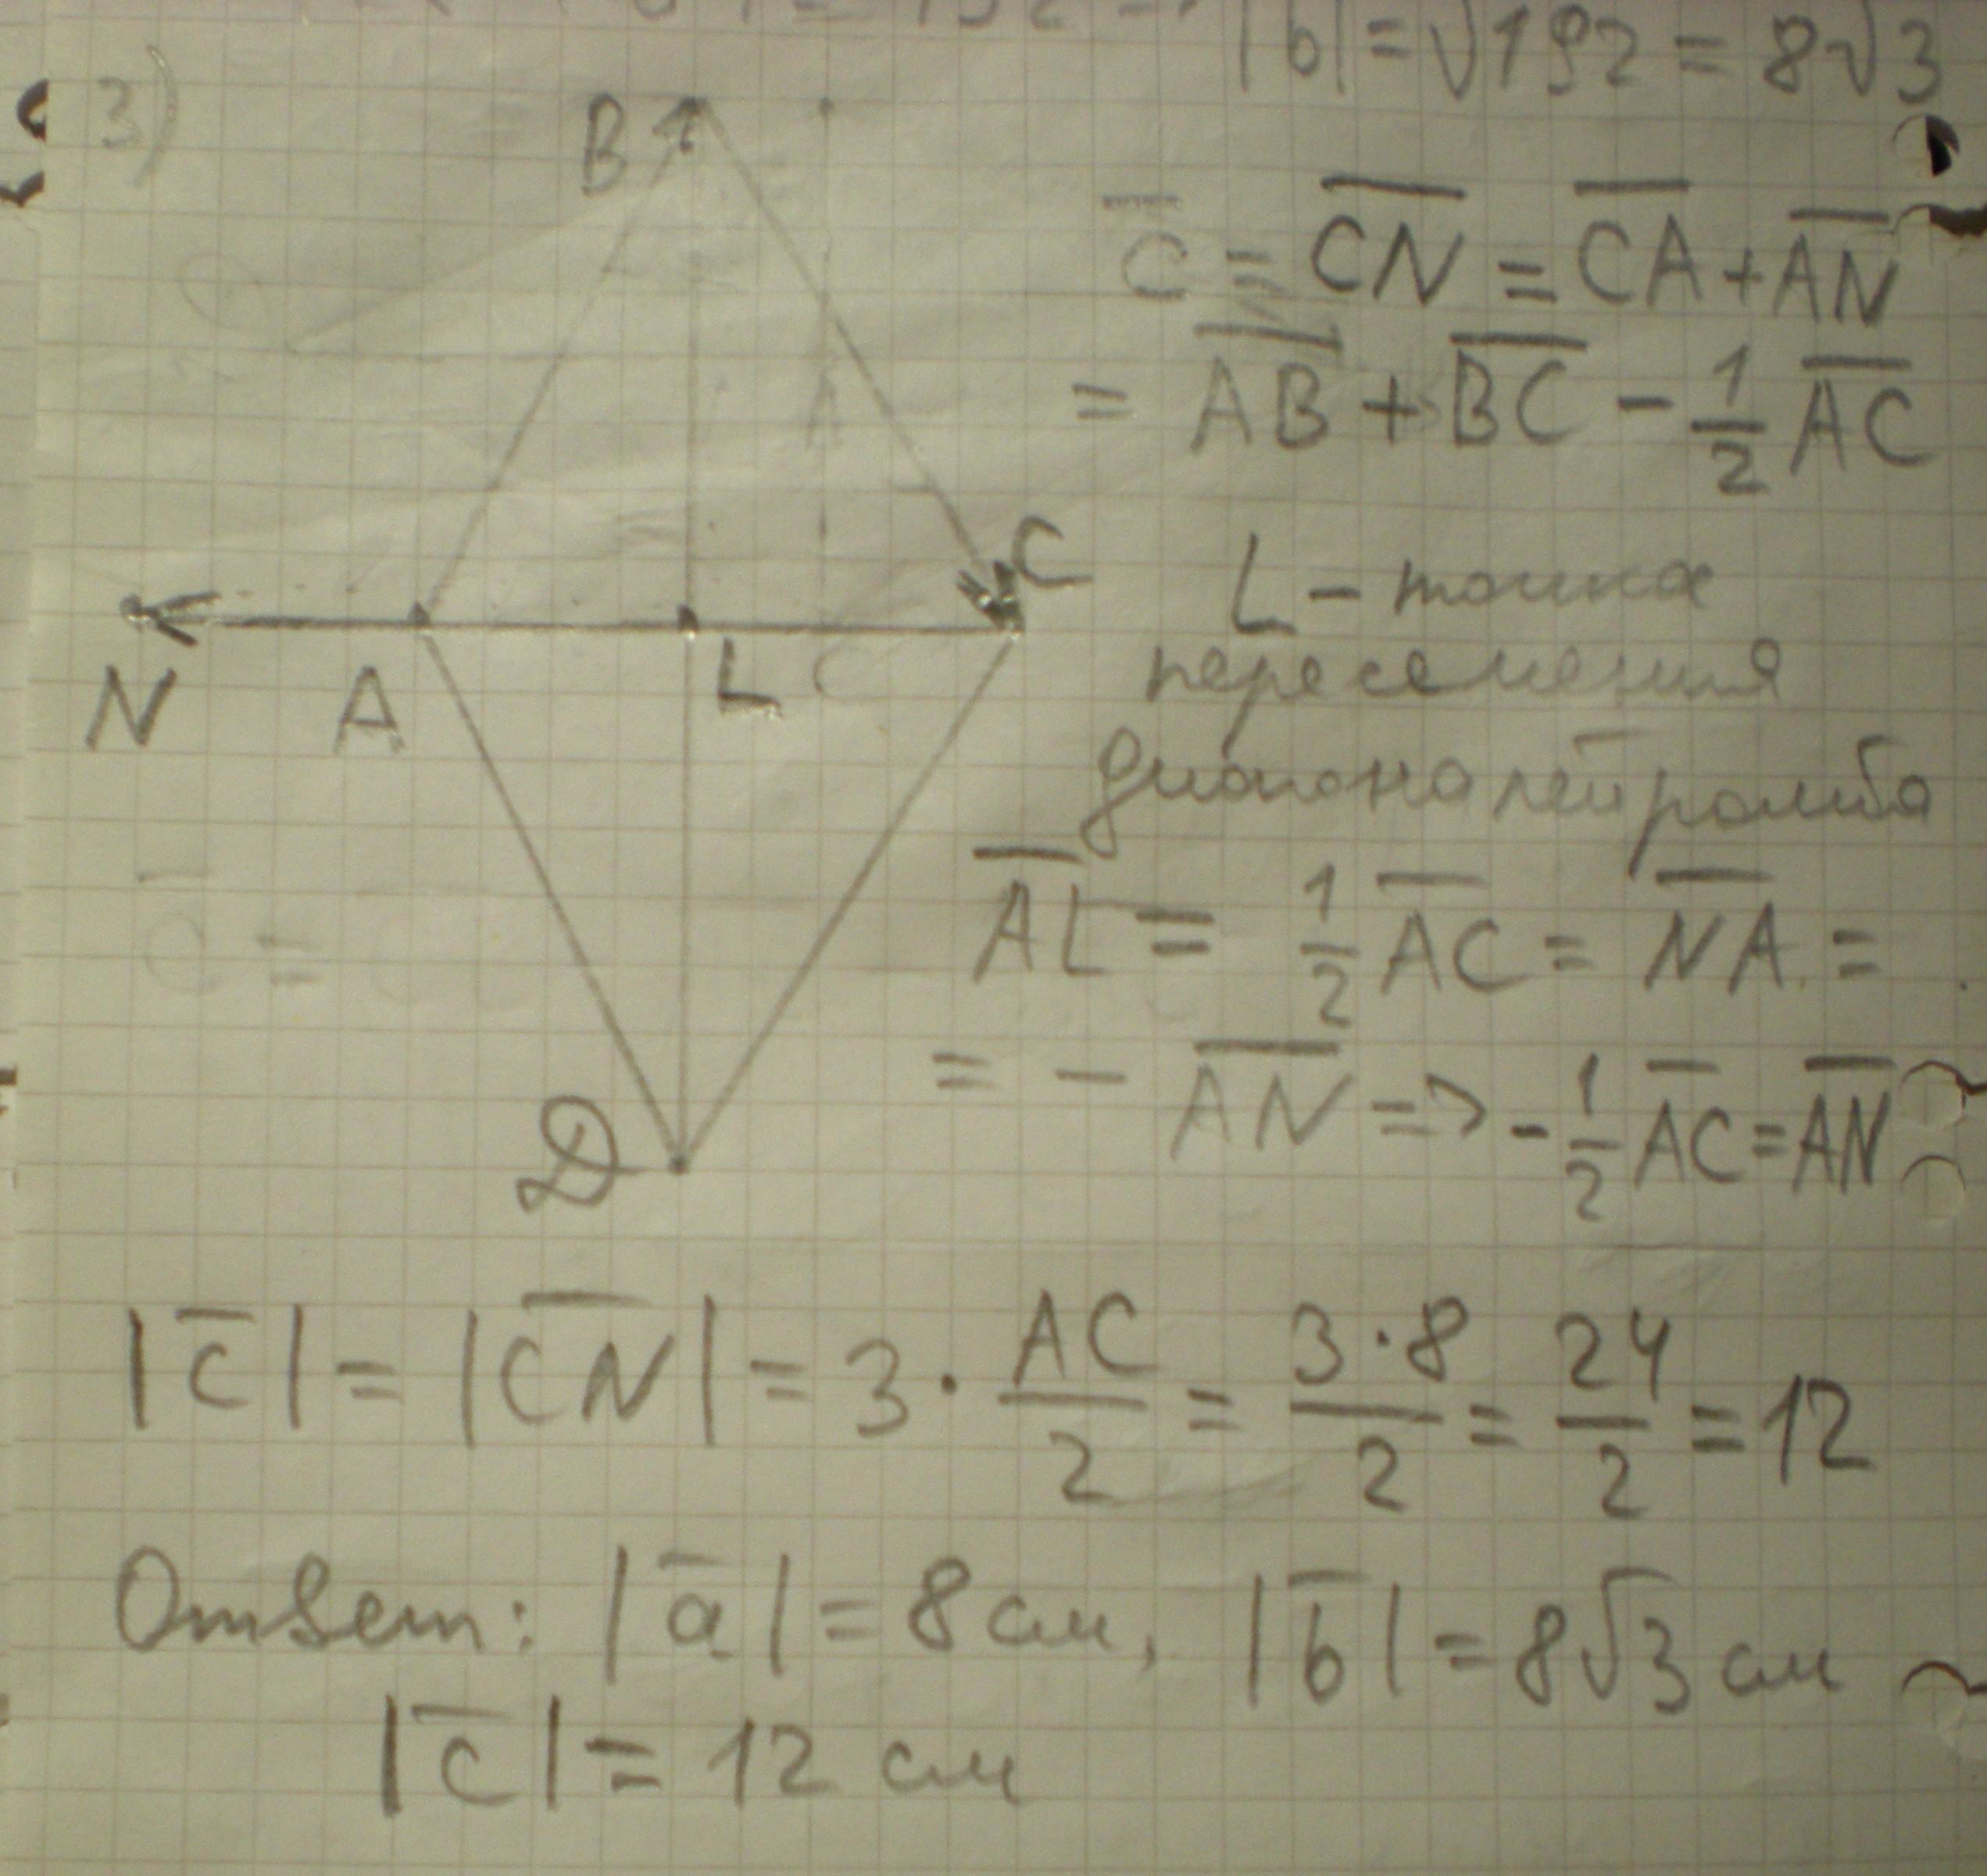 |b| = √192 = 8√3
3)
B
c̅ = C̅N̅ = C̅A̅ + A̅N̅
= A̅B̅ + B̅C̅ - 1/2 A̅C̅
C
L - точка
пересечения
диагоналей ромба
N A L C
A̅L̅ = 1/2 A̅C̅ = N̅A̅ =
= - A̅N̅ => - 1/2 A̅C̅ = A̅N̅
D
|c̅| = |C̅N̅| = 3 · AC/2 = 3·8/2 = 24/2 = 12
Ответ: |a̅| = 8 см, |b̅| = 8√3 см
|c̅| = 12 см